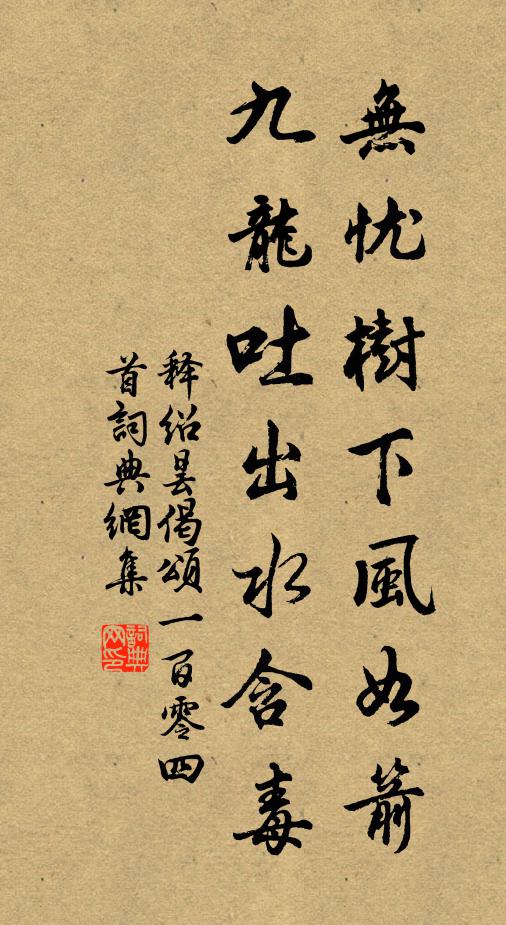 無忧樹下風如箭
九龍吐出水含毒
释绍昙偈頌一百零四
首詞典網集
詞典
网印